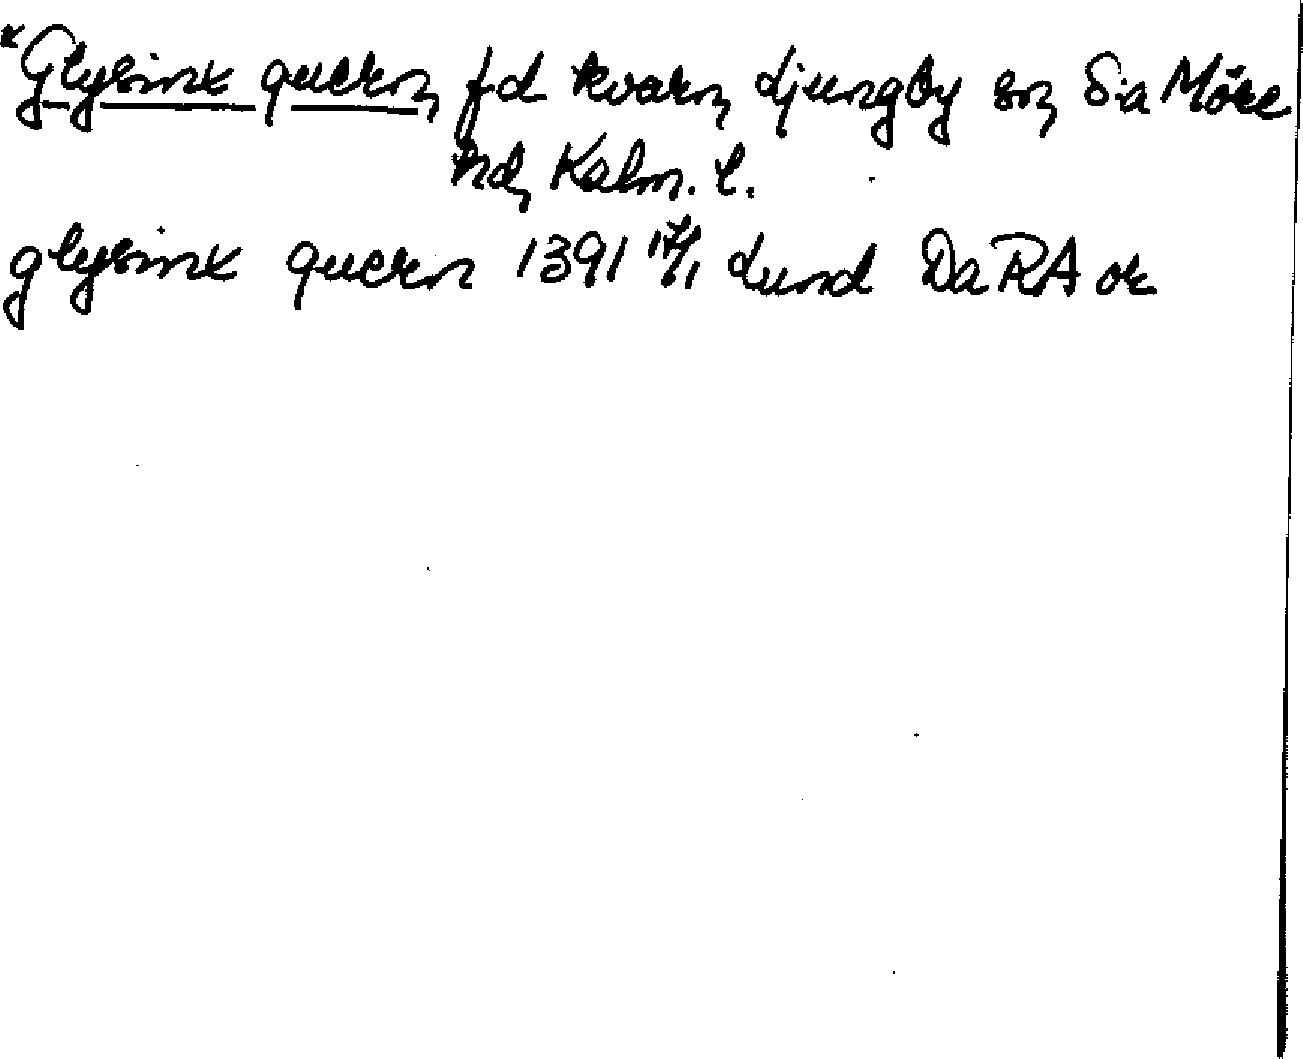 *Glysinx quern, fd kvarn, Ljungby sn, S:a Möre
hd, Kalm. l.
glysinx quern 1391 17/1 Lund DaRA or